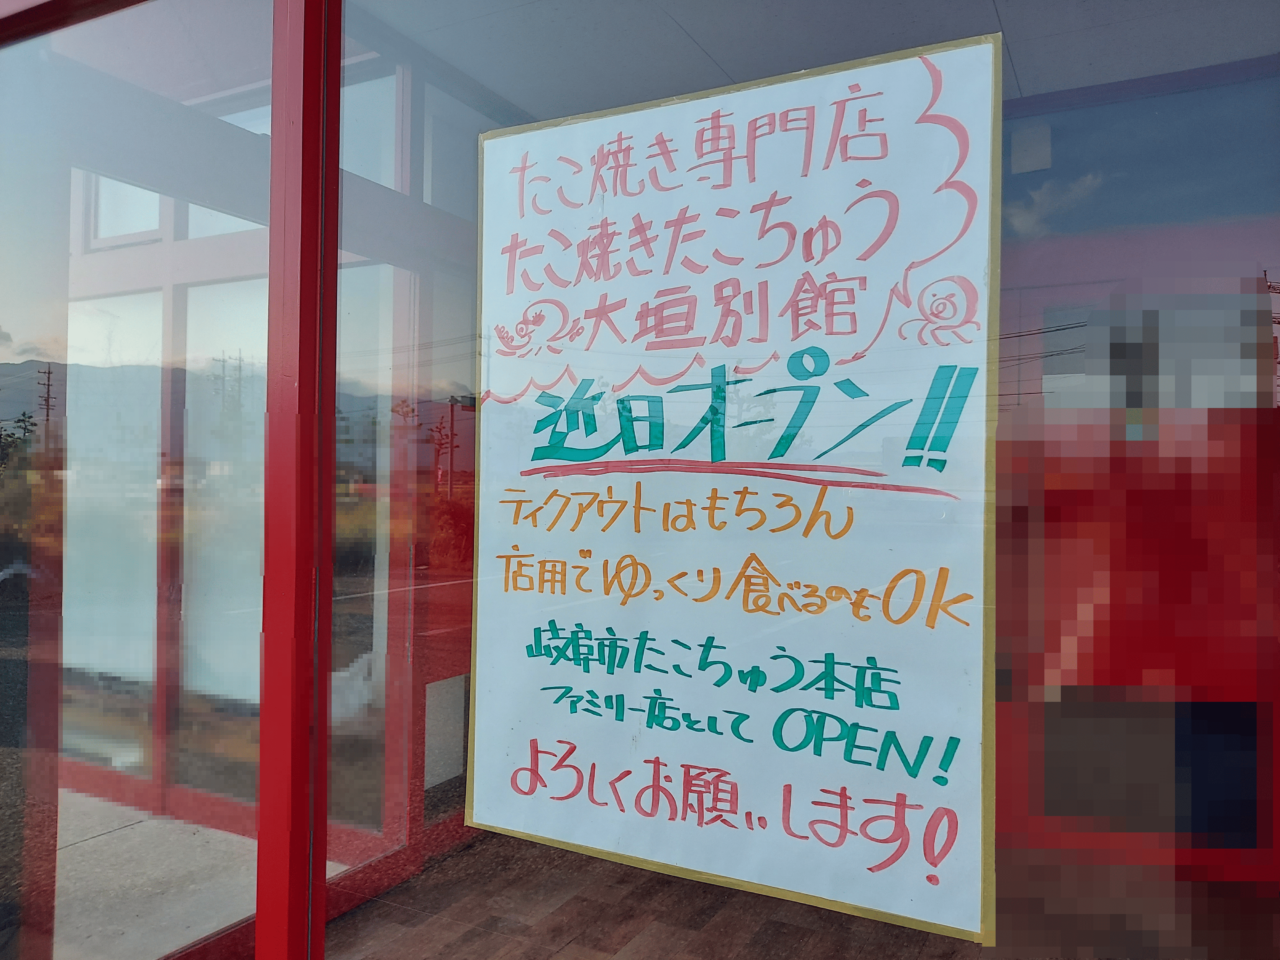 たこ焼き専門店
たこ焼きたこちゅう
大垣別館
近日オープン!!
ティクアウトはもちろん
店用でゆっくり食べるのもOK
岐阜市たこちゅう本店
ファミリー店として OPEN!
よろしくお願いします!